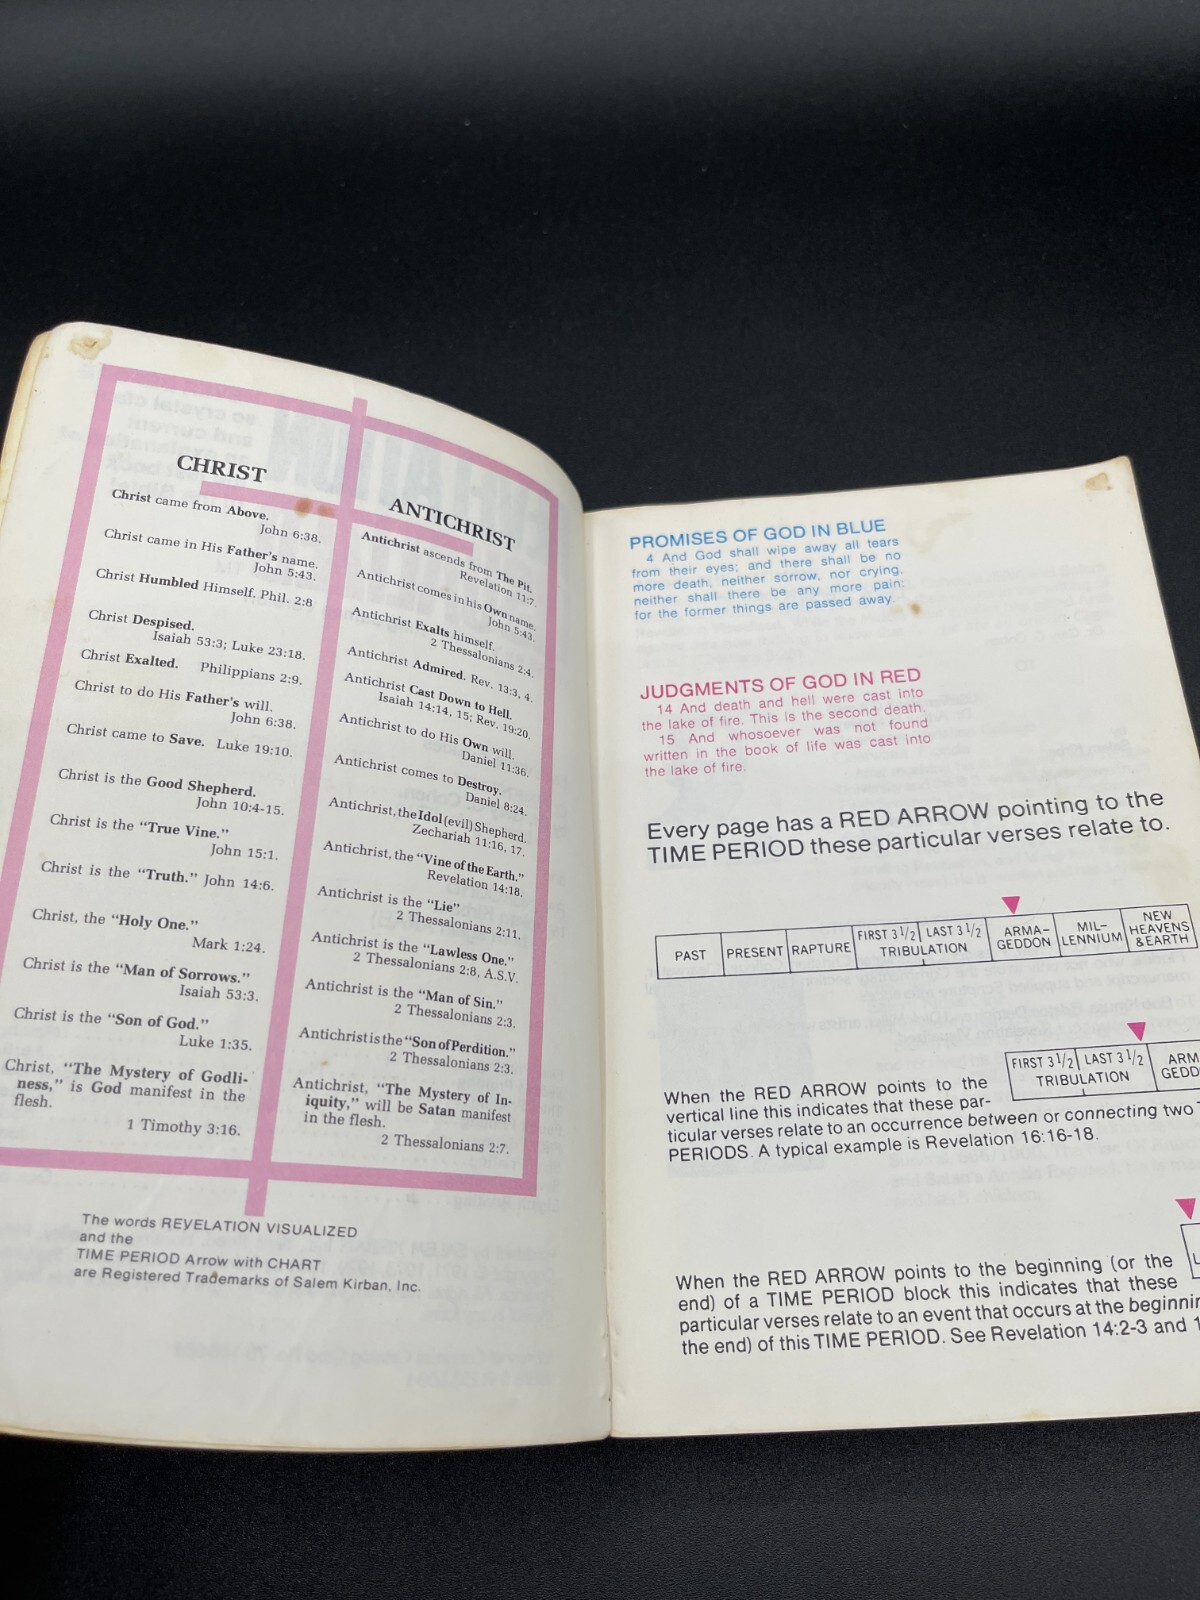 CHRIST
Christ came from Above.
John 6:38.
Christ came in His Father's name.
John 5:43.
Christ Humbled Himself. Phil. 2:8
Christ Despised.
Isaiah 53:3; Luke 23:18.
Christ Exalted. Philippians 2:9.
Christ to do His Father's will.
John 6:38.
Christ came to Save. Luke 19:10.
Christ is the Good Shepherd.
John 10:4-15.
Christ is the "True Vine."
John 15:1.
Christ is the "Truth." John 14:6.
Christ, the "Holy One."
Mark 1:24.
Christ is the "Man of Sorrows."
Isaiah 53:3.
Christ is the "Son of God."
Luke 1:35.
Christ, "The Mystery of Godli-
ness," is God manifest in the
flesh.
1 Timothy 3:16.
ANTICHRIST
Antichrist ascends from The Pit.
Revelation 11:7.
Antichrist comes in his Own name.
John 5:43.
Antichrist Exalts himself.
2 Thessalonians 2:4.
Antichrist Admired. Rev. 13:3, 4.
Antichrist Cast Down to Hell.
Isaiah 14:14, 15; Rev. 19:20.
Antichrist to do His Own will.
Daniel 11:36.
Antichrist comes to Destroy.
Daniel 8:24.
Antichrist, the Idol (evil) Shepherd.
Zechariah 11:16, 17.
Antichrist, the "Vine of the Earth."
Revelation 14:18.
Antichrist is the "Lie"
2 Thessalonians 2:11.
Antichrist is the "Lawless One."
2 Thessalonians 2:8, A.S.V.
Antichrist is the "Man of Sin."
2 Thessalonians 2:3.
Antichrist is the "Son of Perdition."
2 Thessalonians 2:3.
Antichrist, "The Mystery of In-
iquity," will be Satan manifest
in the flesh.
2 Thessalonians 2:7.
The words REVELATION VISUALIZED
and the
TIME PERIOD Arrow with CHART
are Registered Trademarks of Salem Kirban, Inc.
PROMISES OF GOD IN BLUE
4 And God shall wipe away all tears
from their eyes; and there shall be no
more death, neither sorrow, nor crying,
neither shall there be any more pain:
for the former things are passed away.
JUDGMENTS OF GOD IN RED
14 And death and hell were cast into
the lake of fire. This is the second death.
15 And whosoever was not found
written in the book of life was cast into
the lake of fire.
Every page has a RED ARROW pointing to the
TIME PERIOD these particular verses relate to.
PAST PRESENT RAPTURE FIRST 3 1/2 LAST 3 1/2 TRIBULATION ARMA-GEDDON MIL-LENNIUM NEW HEAVENS & EARTH
FIRST 3 1/2 LAST 3 1/2 ARM
TRIBULATION GEDD
When the RED ARROW points to the
vertical line this indicates that these par-
ticular verses relate to an occurrence between or connecting two T
PERIODS. A typical example is Revelation 16:16-18.
When the RED ARROW points to the beginning (or the
end) of a TIME PERIOD block this indicates that these
particular verses relate to an event that occurs at the beginnin
the end) of this TIME PERIOD. See Revelation 14:2-3 and 1